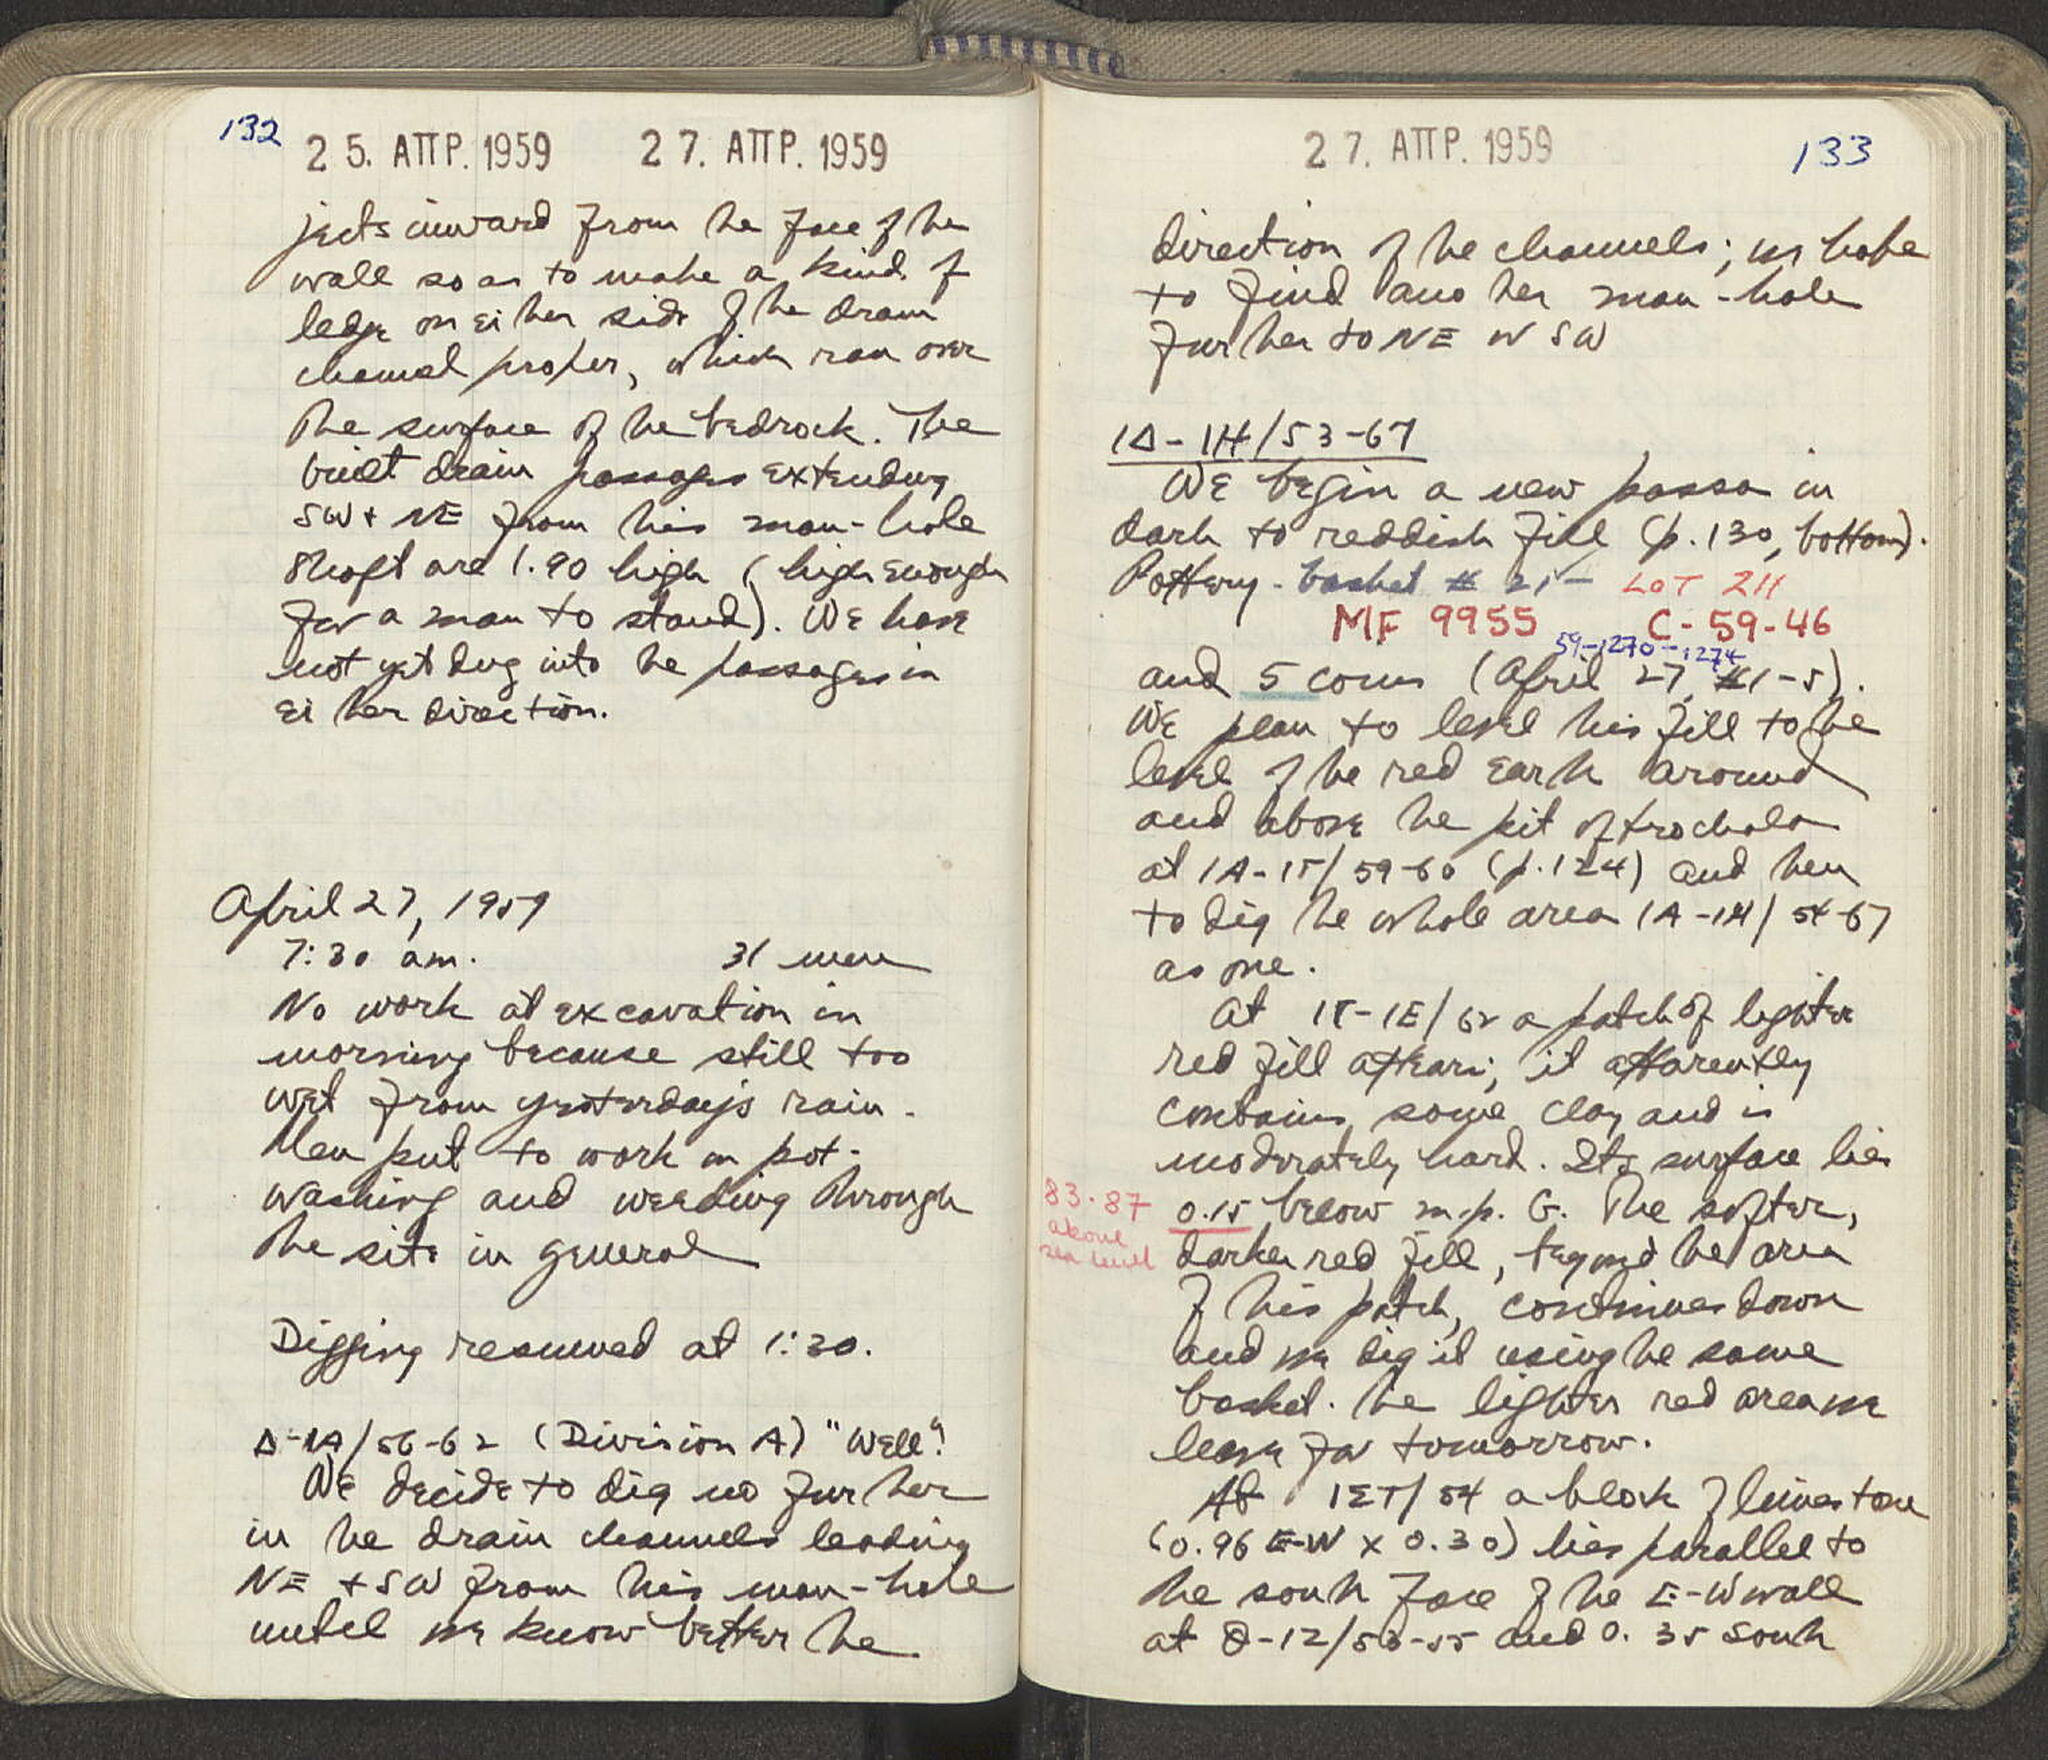 132
25. ΑΠΡ. 1959 27. ΑΠΡ. 1959
jects inward from the face of the
wall so as to make a kind of
ledge on either side of the drain
channel proper, which ran over
the surface of the bedrock. The
built drain passages extending
SW + NE from this man-hole
shaft are 1.90 high (high enough
for a man to stand). We have
not yet dug into the passages in
either direction.
April 27, 1959
7:30 am. 31 men
No work at excavation in
morning because still too
wet from yesterday's rain.
Men put to work on pot-
washing and weeding through
the site in general
Digging resumed at 1:30.
Δ-1A/56-62 (Division A) "Well".
We decide to dig no further
in the drain channels leading
NE + SW from this man-hole
until we know better the
27. ΑΠΡ. 1959
133
direction of the channels; we hope
to find another man-hole
further to NE or SW
1Δ-1H/53-67
We begin a new passa in
dark to reddish fill (p. 130, bottom).
Pottery - basket # 21 - LOT 211
MF 9955 C-59-46
59-1270-1274
and 5 coins (April 27, #1-5).
We plan to level this fill to the
level of the red earth around
and above the pit of trochala
at 1A-1Γ/59-60 (p.124) and then
to dig the whole area 1A-1H/54-67
as one.
At 1Γ-1E/62 a patch of lighter
red fill appears; it apparently
contains some clay and is
moderately hard. Its surface lies
83.87
above
sea level
0.15 below m.p. G. The softer,
darker red fill, beyond the area
of this patch, continues down
and we dig it using the same
basket. The lighter red area we
leave for tomorrow.
At 1ΣT/54 a block of limestone
(0.96 E-W x 0.30) lies parallel to
the south face of the E-W wall
at Θ-12/53-55 and 0.35 south